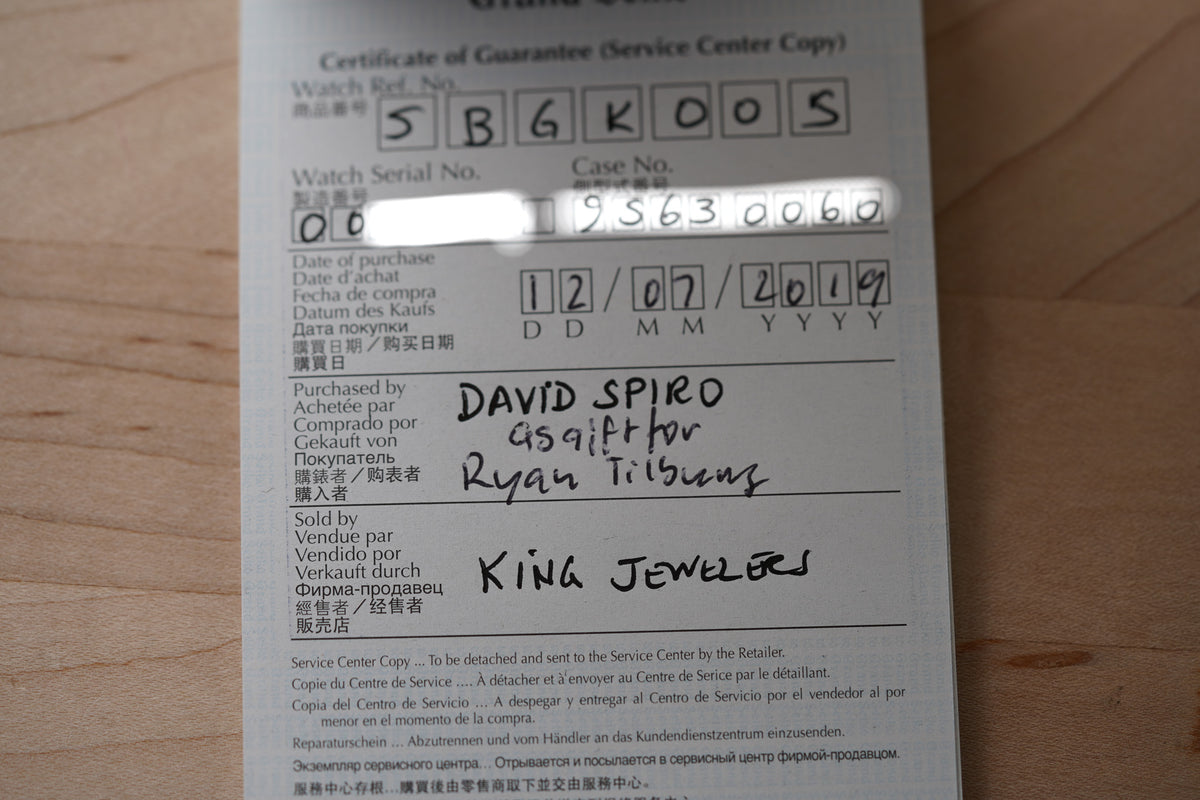 Grand Seiko
Certificate of Guarantee (Service Center Copy)
Watch Ref. No.
商品番号
SBGK005
Watch Serial No.
製造番号
00
Case No.
側型式番号
9S63 0060
Date of purchase
Date d'achat
Fecha de compra
Datum des Kaufs
Дата покупки
購買日期／购买日期
購買日
12/07/2019
D D M M Y Y Y Y
Purchased by
Achetée par
Comprado por
Gekauft von
Покупатель
購錶者／购表者
購入者
DAVID SPIRO
as gift for
Ryan Tilbung
Sold by
Vendue par
Vendido por
Verkauft durch
Фирма-продавец
經售者／经售者
販売店
KING JEWELERS
Service Center Copy ... To be detached and sent to the Service Center by the Retailer.
Copie du Centre de Service .... À détacher et à envoyer au Centre de Serice par le détaillant.
Copia del Centro de Servicio ... A despegar y entregar al Centro de Servicio por el vendedor al por
menor en el momento de la compra.
Reparaturschein ... Abzutrennen und vom Händler an das Kundendienstzentrum einzusenden.
Экземпляр сервисного центра... Отрывается и посылается в сервисный центр фирмой-продавцом.
服務中心存根...購買後由零售商取下並交由服務中心。